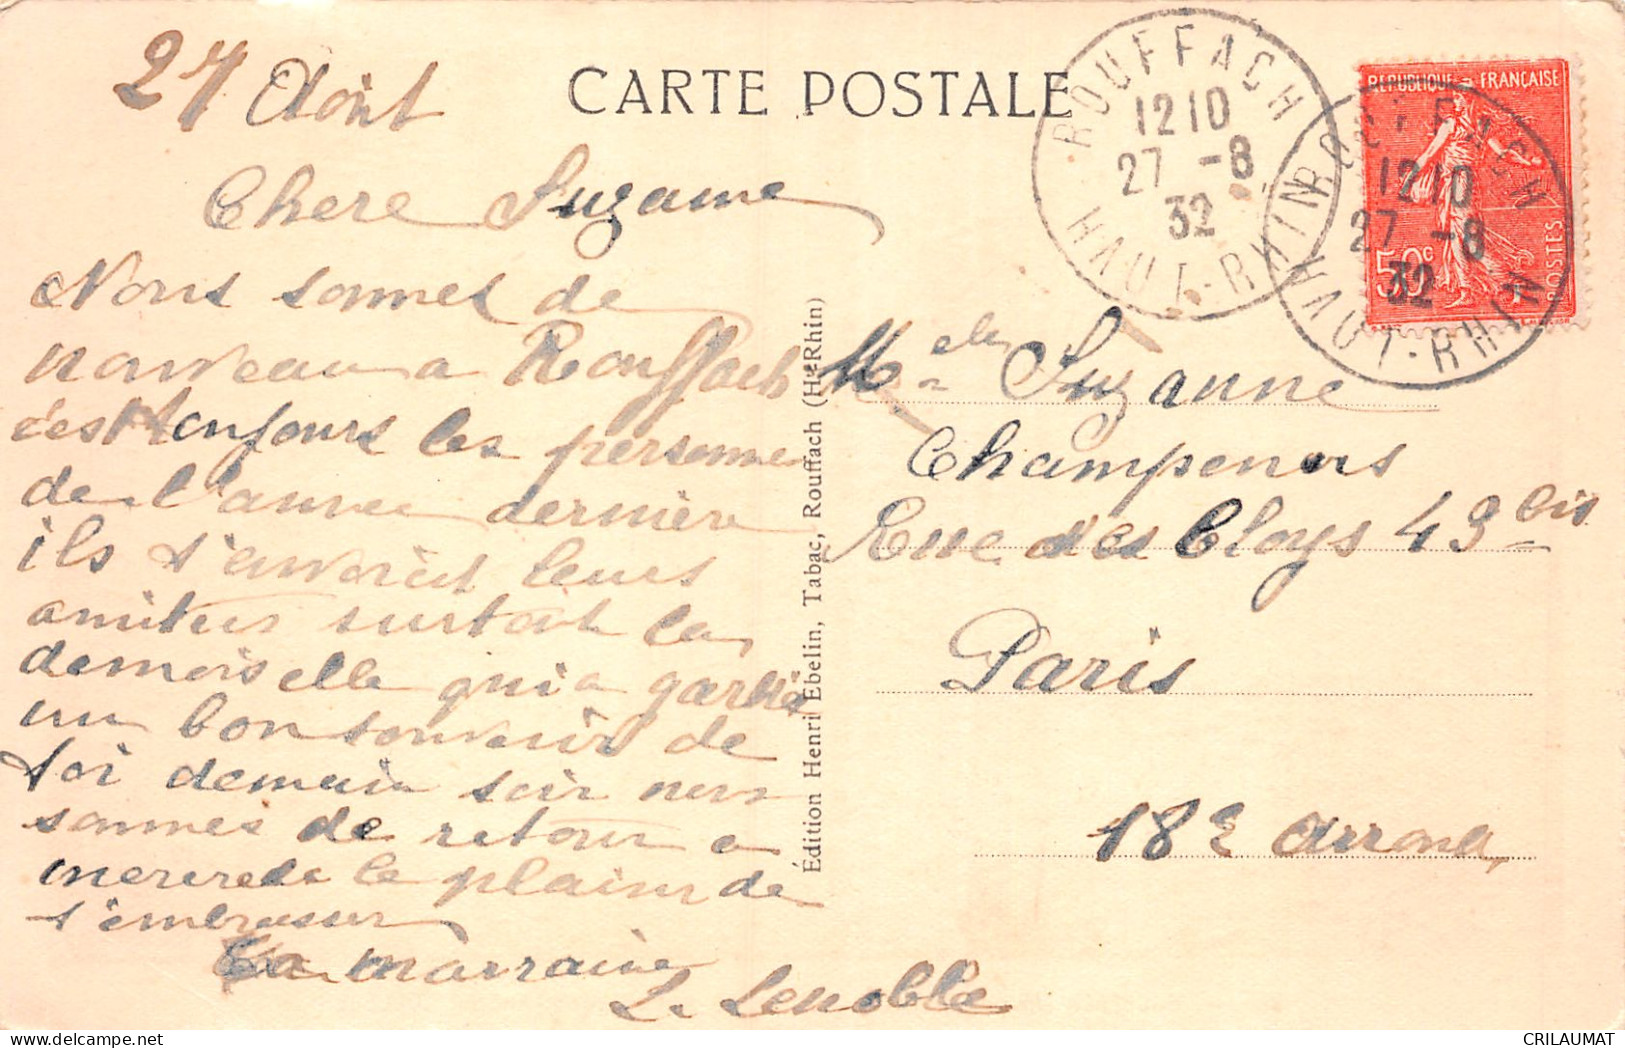 27 Août
CARTE POSTALE
ROUFFACH
12 10
27 - 8
32
HAUT-RHIN
REPUBLIQUE FRANÇAISE
50c
POSTES
ROUFFACH
12 10
27 - 8
32
HAUT-RHIN
Chere Suzanne
Nous sommes de
nouveau a Rouffach
c'est toujours les personne
de l'annee dernière
ils t'envoient leurs
amitiers surtout la
demoiselle qui a garder
un bon souvenir de
toi demain soir nous
sommes de retour a
mercredi le plaisir de
t'embrasser
Ta marraine
L. Lenoble
Édition Henri Ebelin, Tabac, Rouffach (Ht-Rhin)
Melle Suzanne
Champenois
Rue des Cloys 43 bis
Paris
18e Arrond
CRILAUMAT